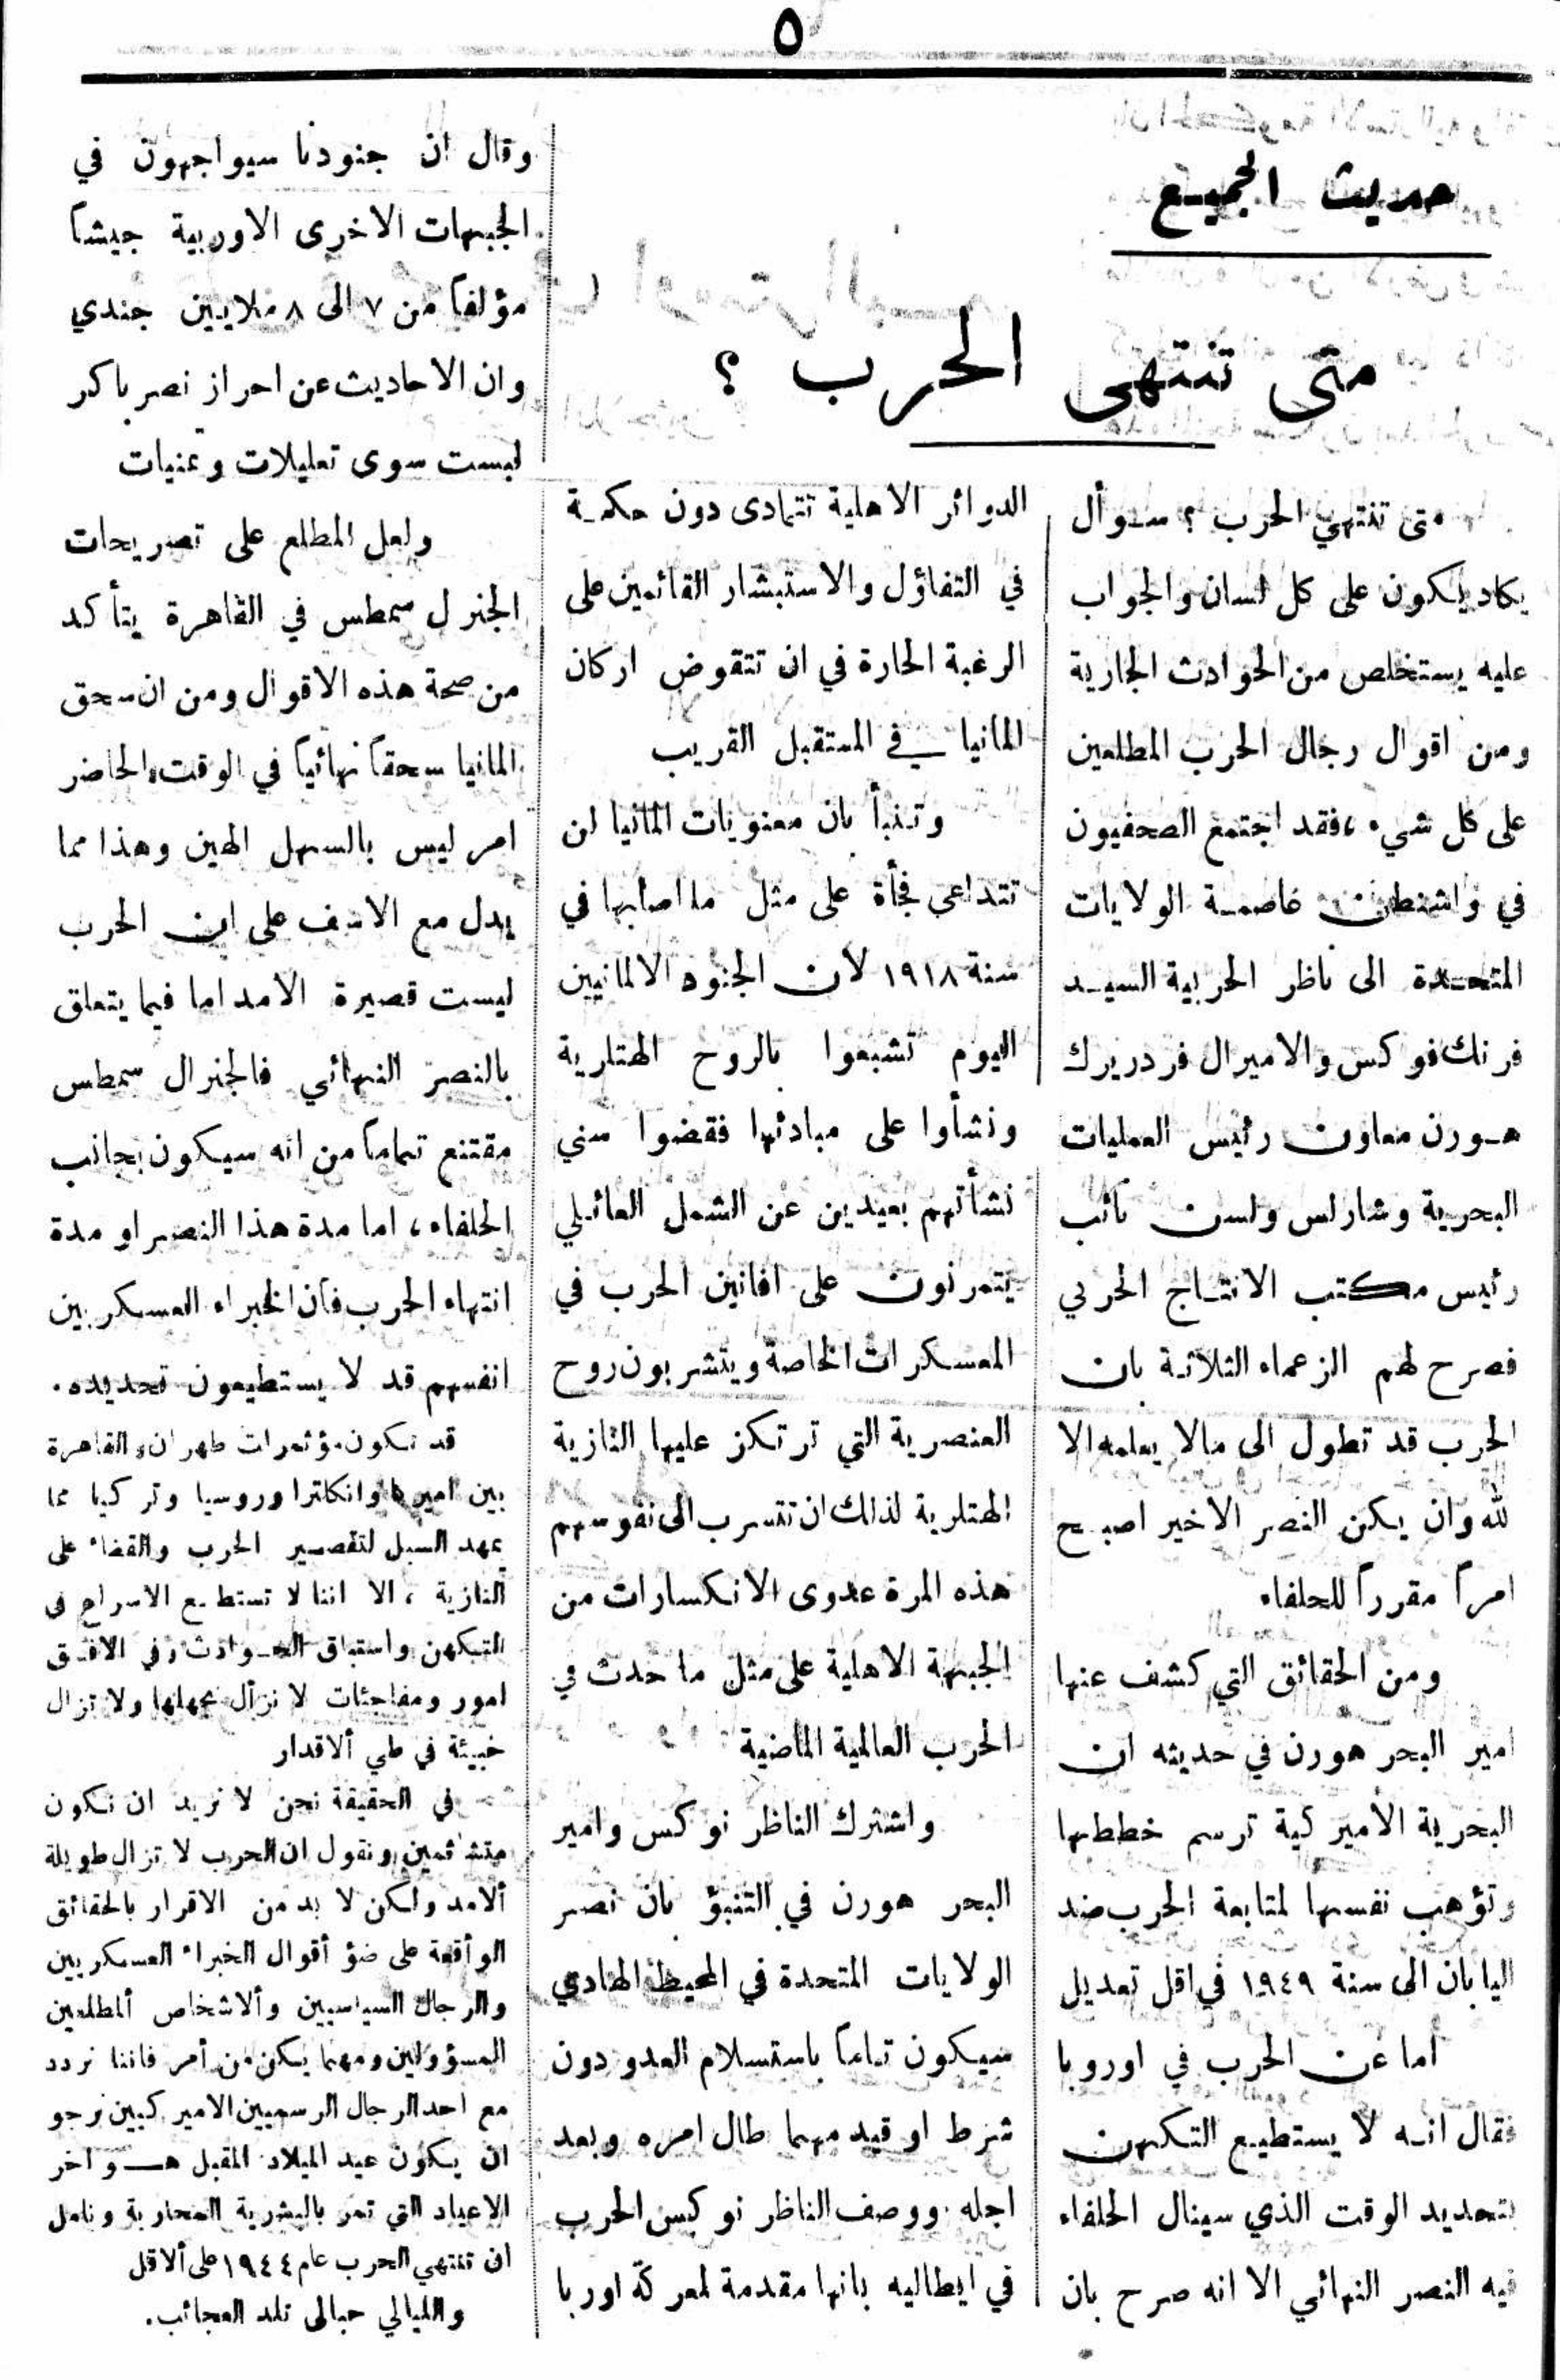 ٥
حديث الجميع
متى تنتهى الحرب ؟
متى تنتهي الحرب ؟ سؤال
يكاد يكون على كل لسان والجواب
عليه يستخلص من الحوادث الجارية
ومن اقوال رجال الحرب المطلعين
على كل شيء ، فقد اجتمع الصحفيون
في واشنطن عاصمة الولايات
المتحدة الى ناظر الحربية السيد
فرنك فوكس والاميرال فردريرك
هورن معاون رئيس العمليات
البحرية وشارلس ولسن نائب
رئيس مكتب الانتاج الحربي
فصرح لهم الزعماء الثلاثة بان
الحرب قد تطول الى مالا يعلمه الا
لله وان يكن النصر الاخير اصبح
امراً مقرراً للحلفاء
ومن الحقائق التي كشف عنها
امير البحر هورن في حديثه ان
البحرية الأميركية ترسم خططها
وتؤهب نفسها لمتابعة الحرب ضد
اليابان الى سنة ١٩٤٩ في اقل تعديل
أما عن الحرب في اوروبا
فقال انه لا يستطيع التكهن
بتحديد الوقت الذي سينال الحلفاء
فيه النصر النهائي الا انه صرح بان
الدوائر الاهلية تتمادى دون حكمة
في التفاؤل والاستبشار القائمين على
الرغبة الحارة في ان تتقوض اركان
المانيا في المستقبل القريب
وتنبأ بان معنويات المانيا لن
تتداعى فجأة على مثل ما اصابها في
سنة ١٩١٨ لان الجنود الالمانيين
اليوم تشبعوا بالروح الهتلرية
ونشأوا على مبادئها فقضوا سني
نشأتهم بعيدين عن الشمل العائلي
يتمرنون على افانين الحرب في
المعسكرات الخاصة ويتشربون روح
العنصرية التي ترتكز عليها النازية
الهتلرية لذلك ان تتسرب الى نفوسهم
هذه المرة عدوى الانكسارات من
الجبهة الاهلية على مثل ما حدث في
الحرب العالمية الماضية
واشترك الناظر نوكس وامير
البحر هورن في التنبؤ بان نصر
الولايات المتحدة في المحيط الهادي
سيكون تاماً باستسلام العدو دون
شرط او قيد مهما طال امره وبعد
اجله . ووصف الناظر نوكس الحرب
في ايطاليه بانها مقدمة لمعركة اوربا
وقال ان جنودنا سيواجهون في
الجبهات الاخرى الاوربية جيشاً
مؤلفاً من ٧ الى ٨ ملايين جندي
وان الاحاديث عن احراز نصر باكر
ليست سوى تعليلات وتمنيات
ولعل المطلع على تصريحات
الجنرل سمطس في القاهرة يتأكد
من صحة هذه الاقوال ومن ان سحق
المانيا سحقاً نهائياً في الوقت الحاضر
امر ليس بالسهل الهين وهذا مما
يدل مع الاسف على ان الحرب
ليست قصيرة الامد اما فيما يتعلق
بالنصر النهائي فالجنرال سمطس
مقتنع تماماً من انه سيكون بجانب
الحلفاء ، اما مدة هذا النصر او مدة
انتهاء الحرب فان الخبراء العسكريين
انفسهم قد لا يستطيعون تحديده .
قد تكون مؤتمرات طهران والقاهرة
بين اميركا وانكلترا وروسيا وتركيا مما
يمهد السبل لتقصير الحرب والقضاء على
النازية ، الا اننا لا نستطيع الاسراع فى
التكهن واستباق الحوادث وفي الافق
امور ومفاجئات لا نزال نجهلها ولا تزال
خبيئة في طي ألاقدار
في الحقيقة نحن لا نريد ان نكون
متشائمين ونقول ان الحرب لا تزال طويلة
ألامد ولكن لا بد من الاقرار بالحقائق
الواقعة على ضؤ أقوال الخبراء العسكريين
والرجال السياسيين وألاشخاص ألمطلعين
المسؤولين ومهما يكن من أمر فاننا نردد
مع احد الرجال الرسميين الاميركيين نرجو
ان يكون عيد الميلاد المقبل هو اخر
الاعياد التي تمر بالبشرية المحاربة ونامل
ان تنتهي الحرب عام ١٩٤٤ على ألاقل
والليالي حبالى تلد العجائب .